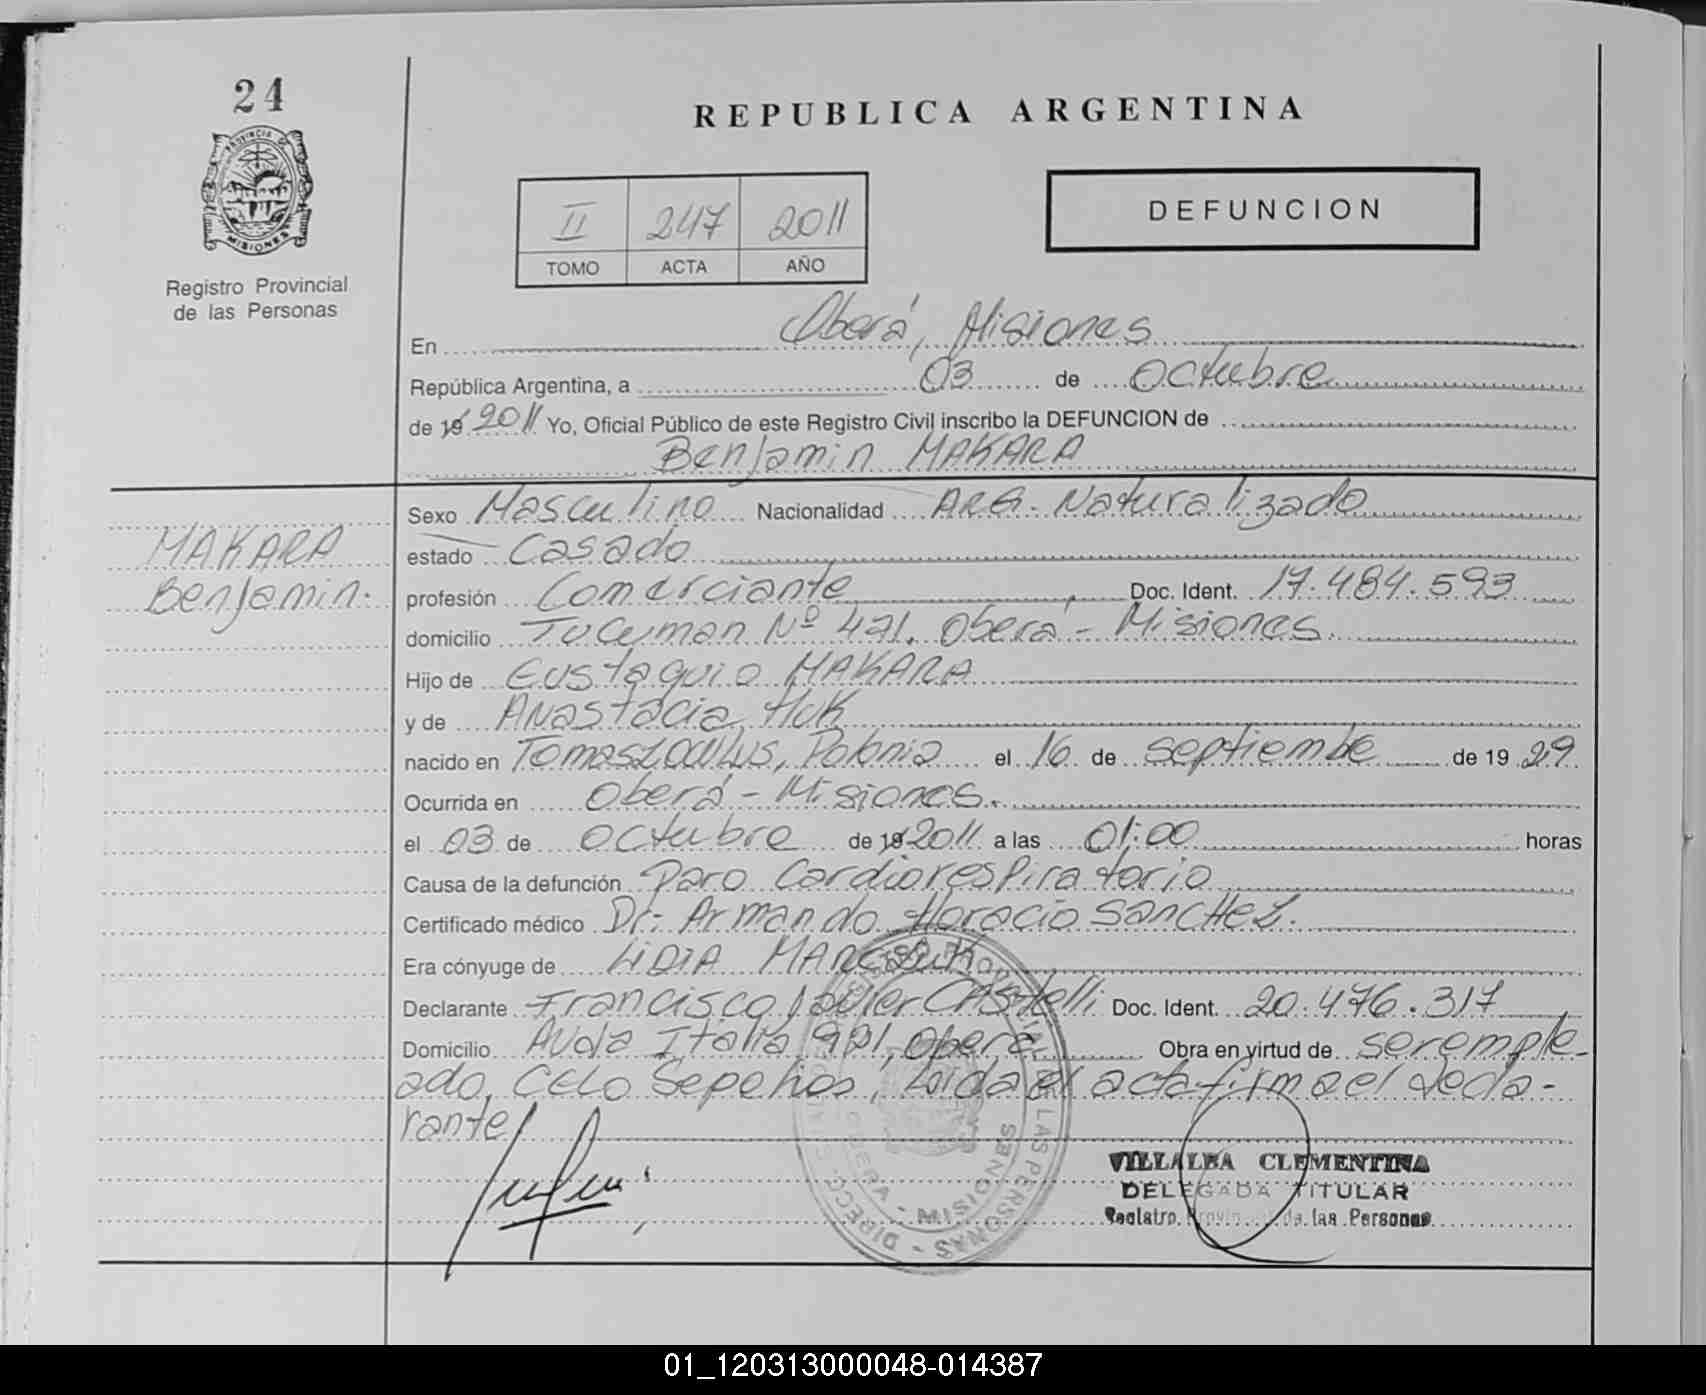 24
PROVINCIA DE
MISIONES
Registro Provincial
de las Personas
REPUBLICA ARGENTINA
II 247 2011
TOMO ACTA AÑO
DEFUNCION
En Oberá, Misiones
República Argentina, a 03 de Octubre
de 19 2011 Yo, Oficial Público de este Registro Civil inscribo la DEFUNCION de
Benjamin MAKARA
MAKARA
Benjamin.
Sexo Masculino Nacionalidad ARG. Naturalizado
estado Casado
profesión Comerciante Doc. Ident. 17.484.593
domicilio Tucuman Nº 471. Oberá - Misiones.
Hijo de Eustaquio MAKARA
y de Anastacia Huk
nacido en Polonia el 16 de septiembe de 19 29
Ocurrida en Oberá - Misiones.
el 03 de octubre de 19 2011 a las 01:00 horas
Causa de la defunción Paro Cardiorespiratorio
Certificado médico Dr. Armando Horacio SancHez.
Era cónyuge de LIDIA
Declarante Francisco Javier CAStelli Doc. Ident. 20.476.317
Domicilio Avda Italia 991, Oberá Obra en virtud de ser emple-
ado, CELO Sepelios, Loida el acta firma el decla-
rante
VILLALBA CLEMENTINA
DELEGADA TITULAR
Registro Provincial de las Personas
DIRECC. LAS PERSONAS
OBERA - MISIONES
01_120313000048-014387